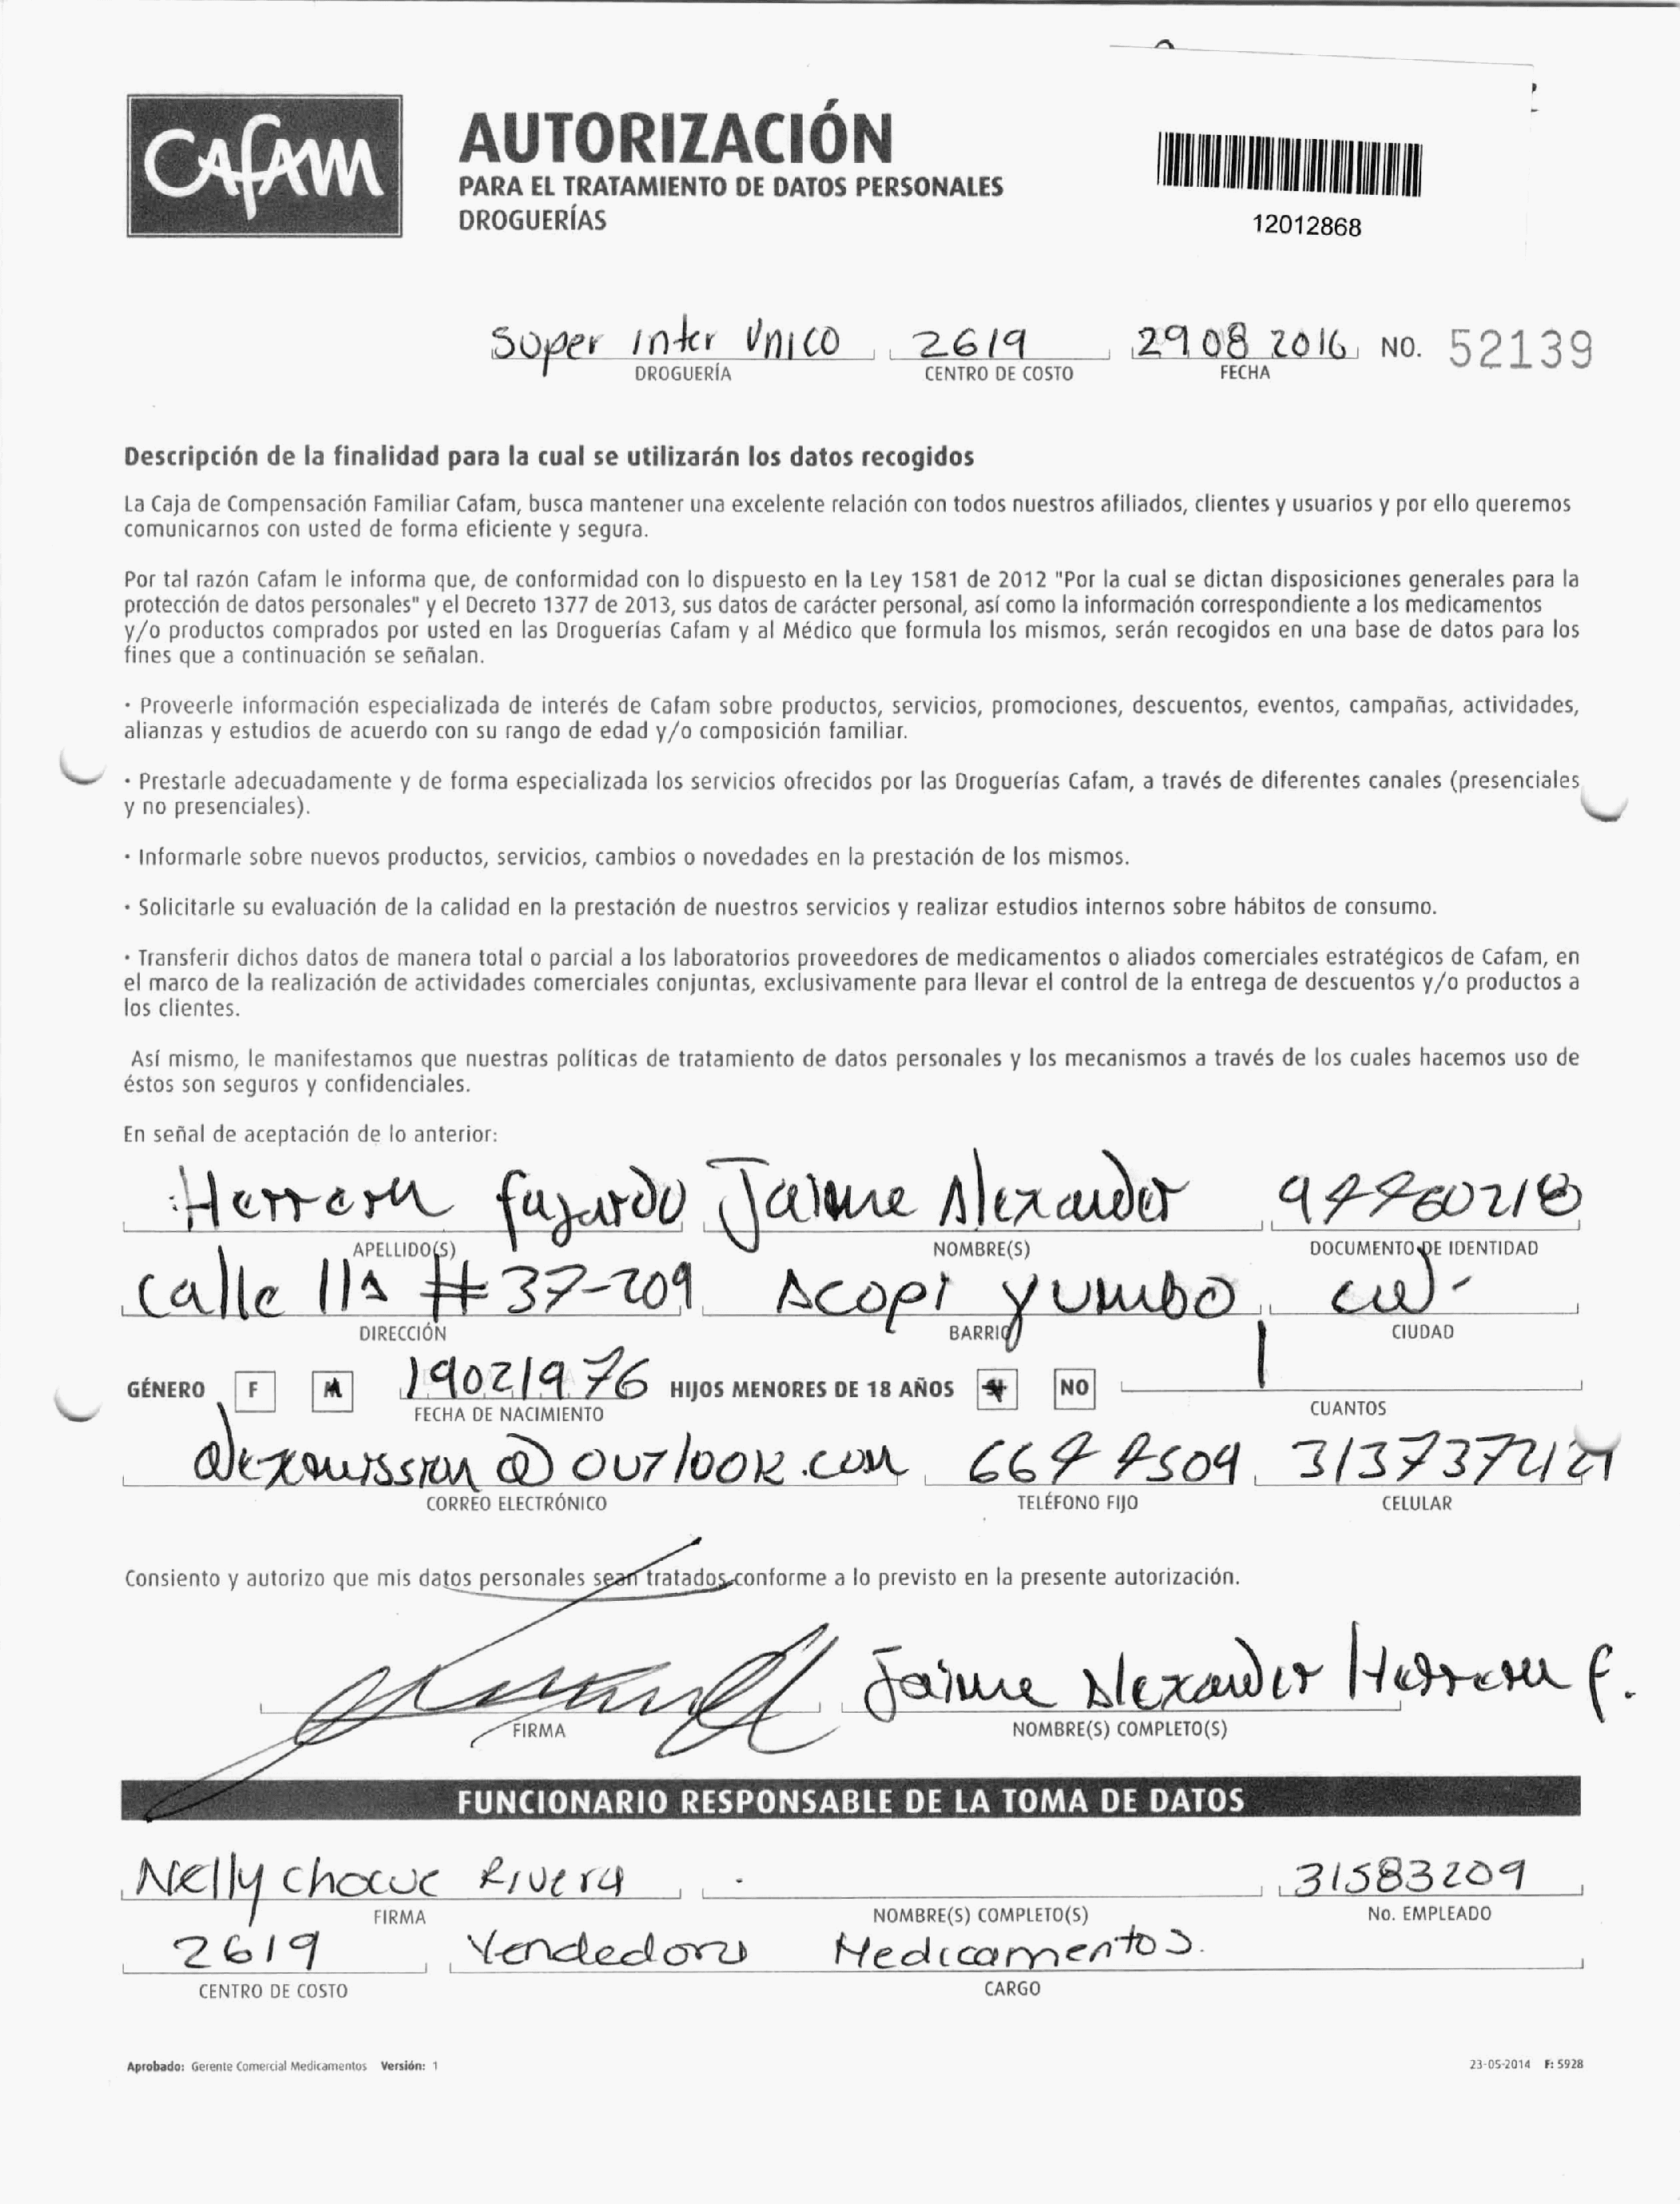 CAFAM
AUTORIZACIÓN
PARA EL TRATAMIENTO DE DATOS PERSONALES
DROGUERÍAS
12012868
Super inter Unico 2619 29 08 2016 NO. 52139
DROGUERÍA CENTRO DE COSTO FECHA
Descripción de la finalidad para la cual se utilizarán los datos recogidos
La Caja de Compensación Familiar Cafam, busca mantener una excelente relación con todos nuestros afiliados, clientes y usuarios y por ello queremos
comunicarnos con usted de forma eficiente y segura.
Por tal razón Cafam le informa que, de conformidad con lo dispuesto en la Ley 1581 de 2012 "Por la cual se dictan disposiciones generales para la
protección de datos personales" y el Decreto 1377 de 2013, sus datos de carácter personal, así como la información correspondiente a los medicamentos
y/o productos comprados por usted en las Droguerías Cafam y al Médico que formula los mismos, serán recogidos en una base de datos para los
fines que a continuación se señalan.
· Proveerle información especializada de interés de Cafam sobre productos, servicios, promociones, descuentos, eventos, campañas, actividades,
alianzas y estudios de acuerdo con su rango de edad y/o composición familiar.
· Prestarle adecuadamente y de forma especializada los servicios ofrecidos por las Droguerías Cafam, a través de diferentes canales (presenciales
y no presenciales).
· Informarle sobre nuevos productos, servicios, cambios o novedades en la prestación de los mismos.
· Solicitarle su evaluación de la calidad en la prestación de nuestros servicios y realizar estudios internos sobre hábitos de consumo.
· Transferir dichos datos de manera total o parcial a los laboratorios proveedores de medicamentos o aliados comerciales estratégicos de Cafam, en
el marco de la realización de actividades comerciales conjuntas, exclusivamente para llevar el control de la entrega de descuentos y/o productos a
los clientes.
Así mismo, le manifestamos que nuestras políticas de tratamiento de datos personales y los mecanismos a través de los cuales hacemos uso de
éstos son seguros y confidenciales.
En señal de aceptación de lo anterior:
Herrera fajardo Jaime Alexander
APELLIDO(S) NOMBRE(S) DOCUMENTO DE IDENTIDAD
Calle 11A # 37-209 Acopi Yumbo
DIRECCIÓN BARRIO CIUDAD
GÉNERO F M 19021976 HIJOS MENORES DE 18 AÑOS NO 1
FECHA DE NACIMIENTO CUANTOS
@ outlook.com
CORREO ELECTRÓNICO TELÉFONO FIJO CELULAR
Consiento y autorizo que mis datos personales sean tratados conforme a lo previsto en la presente autorización.
Jaime Alexander Herrera f.
FIRMA NOMBRE(S) COMPLETO(S)
FUNCIONARIO RESPONSABLE DE LA TOMA DE DATOS
Nelly chocue Rivera 31583209
FIRMA NOMBRE(S) COMPLETO(S) No. EMPLEADO
2619 Vendedora Medicamentos.
CENTRO DE COSTO CARGO
Aprobado: Gerente Comercial Medicamentos Versión: 1 23-05-2014 F: 5928